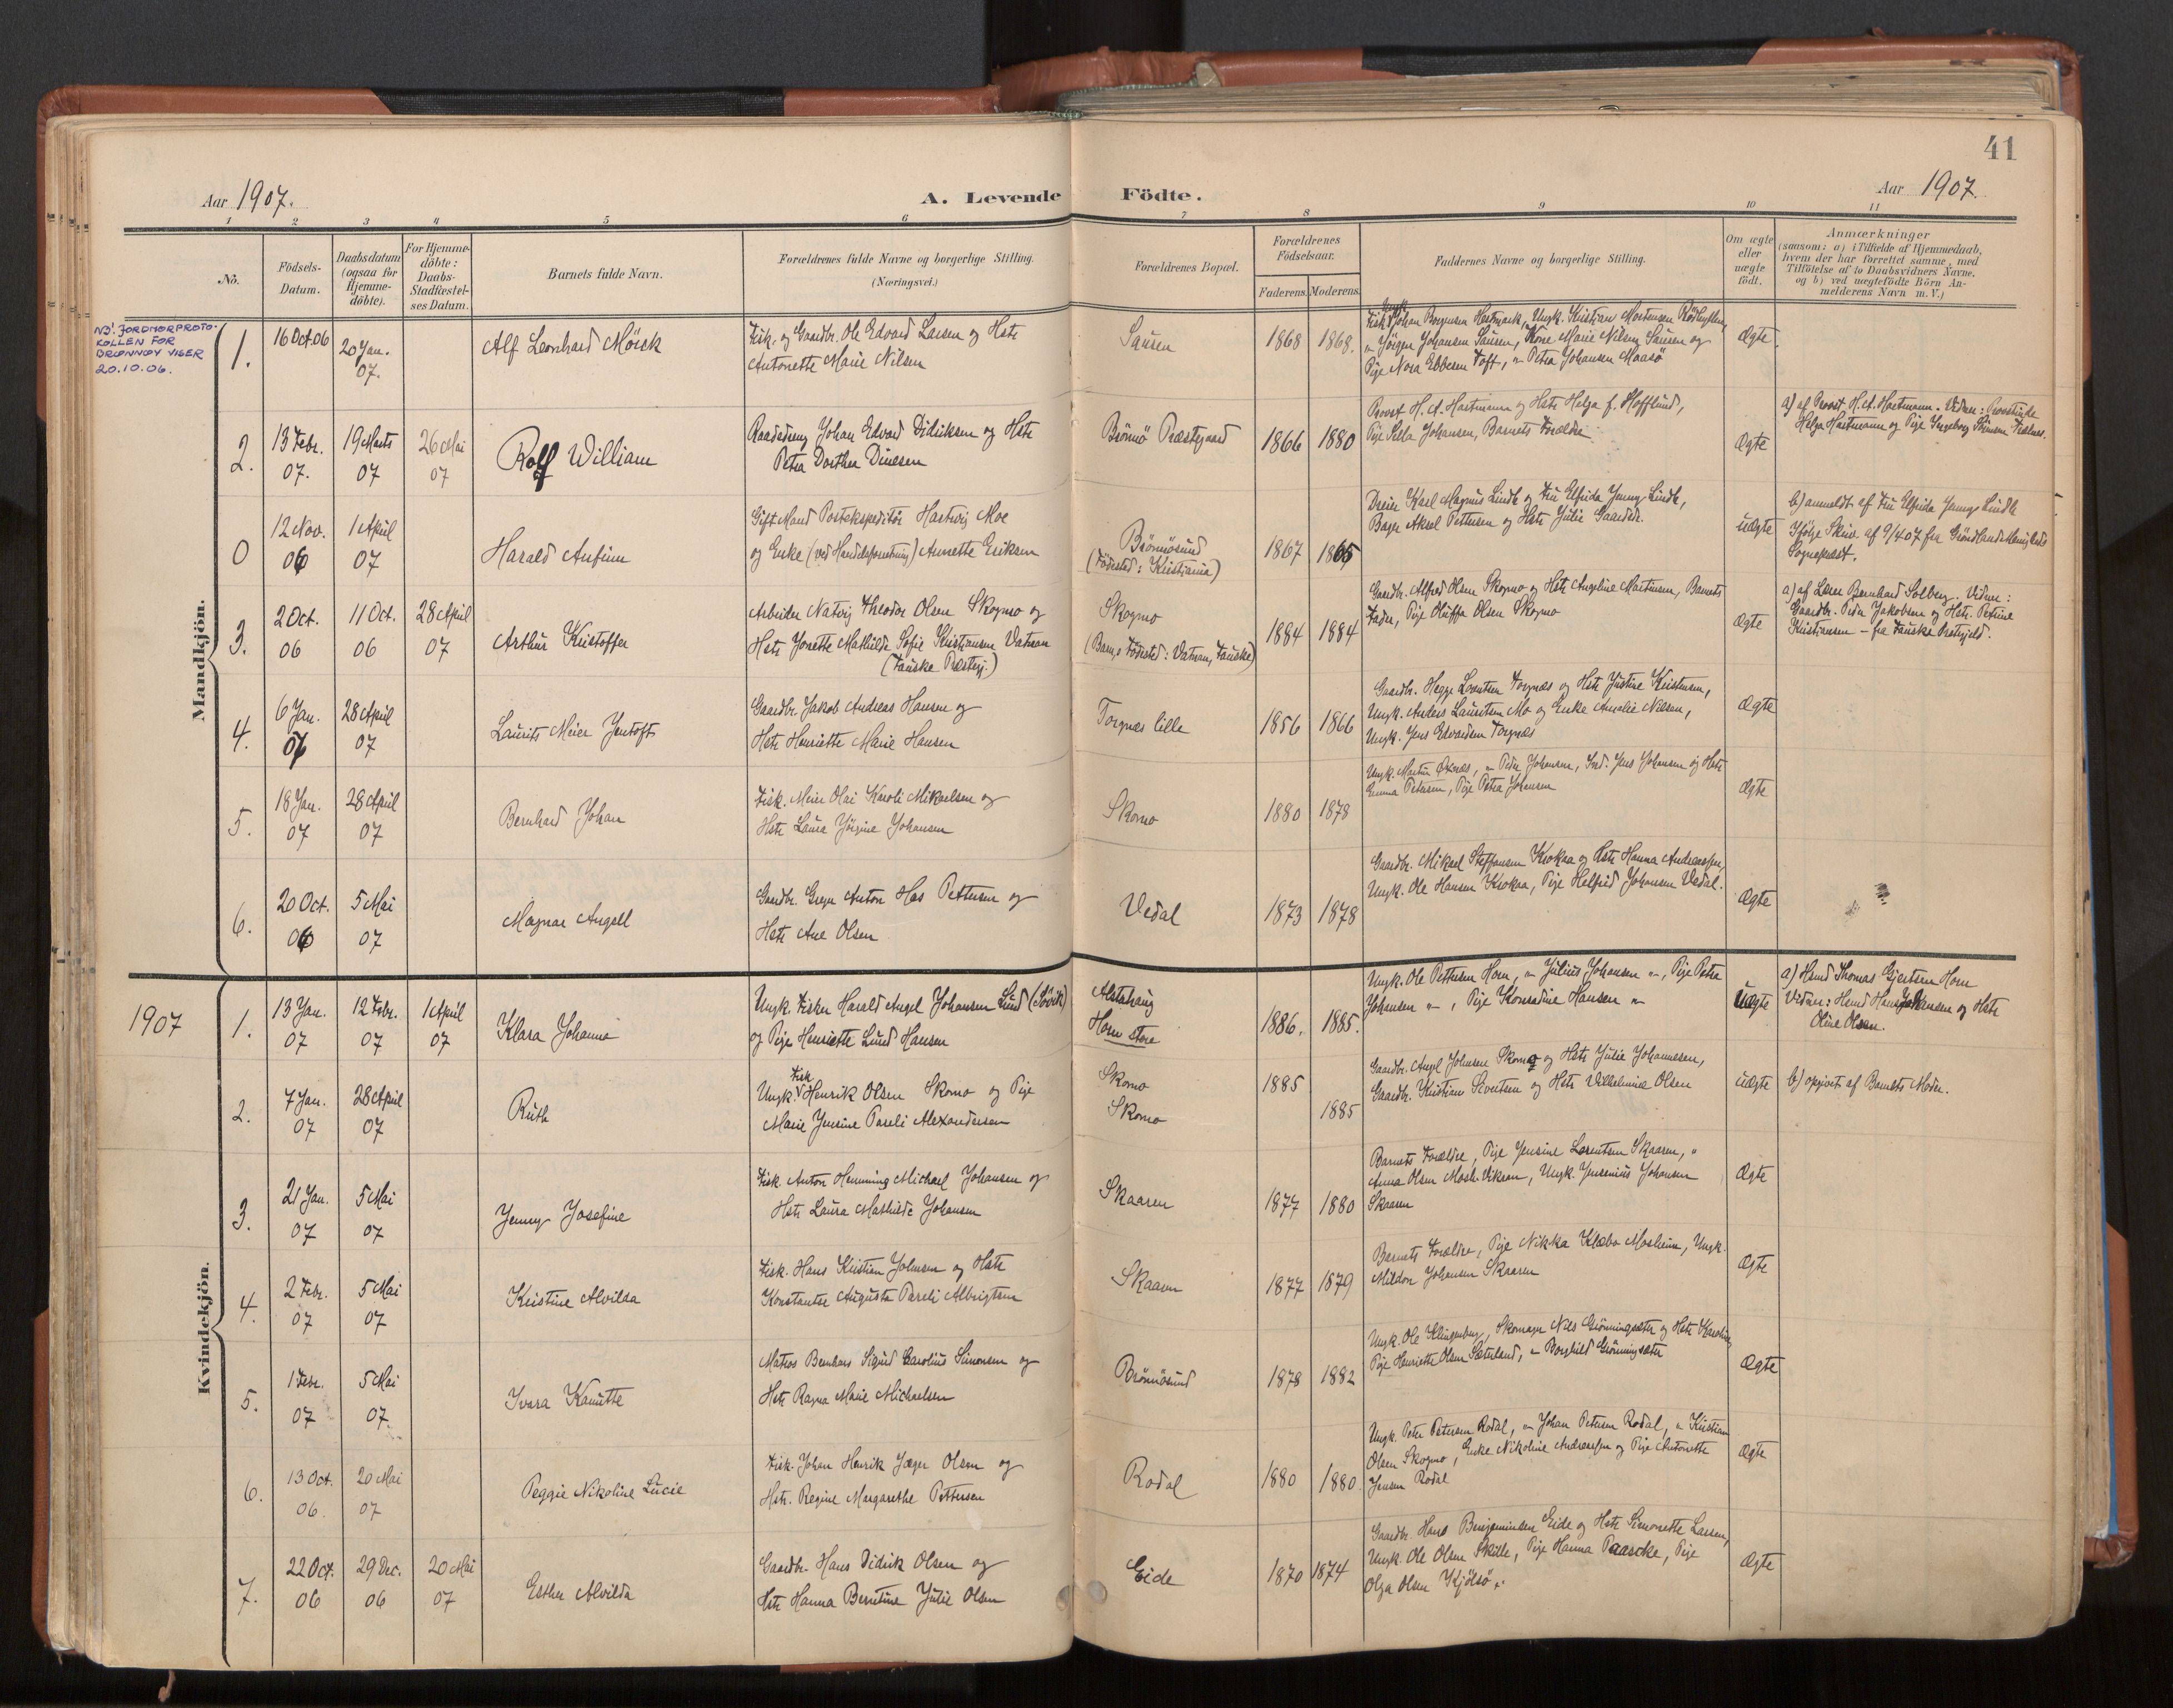 41
Aar 1907.
A. Levende Födte.
Aar 1907.
1 2 3 4 5 6 7 8 9 10 11
No.
Födsels-
Datum.
Daabsdatum
(ogsaa for
Hjemme-
döbte).
For Hjemme-
döbte:
Daabs-
Stadfæstel-
ses Datum.
Barnets fulde Navn.
Forældrenes fulde Navne og borgerlige Stilling.
(Næringsvei.)
Forældrenes Bopæl.
Forældrenes
Födselsaar.
Faderens. Moderens.
Faddernes Navne og borgerlige Stilling.
Om ægte
eller
uægte
födt.
Anmærkninger
(saasom: a) i Tilfælde af Hjemmedaab,
hvem der har forrettet samme, med
Tilföielse af to Daabsvidners Navne.
og b) ved uægtefödte Börn An-
melderens Navn m. V.)
NB! JORDMORPROTO-
KOLLEN FOR
BRØNNØY VISER
20.10.06.
Mandkjön.
1.
16 Oct. 06
20 Jan.
07.
Alf Leonhard Mörck
Fisk. og Gaardbr. Ole Edvard Larsen og Hstr
Antonette Marie Nilsen
Sausen
1868 1868.
Fisk. Johan Borgensen Hestmark, Ungk. Kristian Mortensen
" Jörgen Johansen Sausen, Kone Marie Nilsen Sausen og
Pige Nora Ebbesen Toft, " Petra Johansen Maasö
Ægte.
2.
13 Febr.
07.
19 Marts
07
26 Mai
07
Rolf William
Raadsdreng Johan Edvard Didriksen og Hstr
Petra Dorthea Dinesen
Brönnö Præstegaard
1866 1880
Provst H. A. Hartmann og Hstr Helga f. Hofflund,
Pige Sella Johansen, Barnets Forældre
Ægte
a) af Provst H. A. Hartmann. Vidner: Provstinde
Helga Hartmann og Pige Ingeborg Simonsen Trælnes.
0
12 Nov.
06
1 April
07
Harald Anfinn
Gift Mand Postekspeditör Hartvig Moe
og Enke (ved Handelsforretning) Annette Eriksen
Brönnösund
(Födested: Kristiania)
1867 1865
Dreier Karl Magnus Lindh og Fru Elfrida Jenny Lindh,
Bager Aksel Pettersen og Hstr Julie Gaarder.
uægte
b) anmeldt af Fru Elfrida Jenny Lindh
Ifölge Skriv. af 9/4 07 fra Grönlands Menigheds
Sognepræst.
3.
2 Oct.
06
11 Oct.
06
28 April
07
Arthur Kristoffer
Arbeider Natvig Theodor Olsen Skogmo og
Hstr Jonette Mathilde Sofie Kristiansen Vatnan
(Fauske Præstegj.)
Skogmo
(Barnes Födested: Vatnan, Fauske)
1884 1884
Gaardbr. Alfred Olsen Skogmo og Hstr Angeline Martinsen, Barnets
Fader, Pige Oluffa Olsen Skogmo
Ægte
a) af Lærer Bernhard Solberg. Vidner:
Gaardbr. Peder Jakobsen og Hstr. Petrine
Kristiansen – fra Fauske Prestegjeld.
4.
6 Jan.
07
28 April
07
Laurits Meier Jentoft
Gaardbr. Jakob Andreas Hansen og
Hstr Henriette Marie Hansen
Torgnes lille
1856 1866
Gaardbr. Hegge Lorentsen Torgnæs og Hstr Justine Kristensen,
Ungk. Anders Lauritsen Mo og Enke Amalie Nilsen,
Ungk. Jens Edvardsen Torgnæs
Ægte
5.
18 Jan.
07
28 April
07
Bernhard Johan
Fisk. Meier Olai Karoli Mikaelsen og
Hstr Laura Jörgine Johansen
Skomo
1880 1878
Ungk. Martin Öxnæs, " Peder Johansen, Ind. Jens Johansen og Hstr
Emma Petersen, Pige Petra Johansen
Ægte
6.
20 Oct.
06
5 Mai
07
Magnar Angell
Gaardbr. Greger Anton Has Pettersen og
Hstr Ane Olsen
Vedal
1873 1878
Gaardbr. Mikael Steffensen Krokaa og Hstr Hanna Andreassen,
Ungk. Ole Hansen Krokaa, Pige Helfrid Johansen Vedal.
Ægte
1907
Kvindekjön.
1.
13 Jan.
07
12 Febr.
07
1 April
07
Klara Johanna
Ungk. Fisker Harald Angel Johansen Lund (Sövik)
og Pige Henriette Lund Hansen
Alstahaug
Horn store
1886. 1885.
Ungk. Ole Pettersen Horn, " Julius Johansen ", Pige Petra
Johansen ", Pige Konradine Hansen "
uægte
a) Hmd Thomas Gjertsen Horn
Vidner: Hmd Hans Johansen og Hstr
Oline Olsen.
2.
7 Jan.
07
28 April
07
Ruth
Ungk. Fisk. Henrik Olsen Skomo og Pige
Marie Jensine Pareli Alexandersen
Skomo
Skomo
1885
1885
Gaardbr. Angel Johnsen Skomo og Hstr Julie Johannesen,
Gaardbr. Kristian Sivertsen og Hstr Vilhelmine Olsen
uægte
b) opgivet af Barnets Moder.
3.
21 Jan.
07
5 Mai
07
Jenny Josefine
Fisk. Anton Henning Michael Johansen og
Hstr Laura Mathilde Johansen
Skaaren
1877 1880
Barnets Forældre, Pige Jensine Lorentsen Skaaren, "
Anna Olsen Mosh. Vikran, Ungk. Jensenius Johansen
Skaaren
Ægte
4.
2 Febr.
07
5 Mai
07
Kristine Alvilda
Fisk. Hans Kristian Johnsen og Hstr
Konstantse Augusta Pareli Albrigtsen
Skaaren
1877 1879
Barnets Forældre, Pige Nikka Klæbo Mosheim, Ungk.
Mildon Johansen Skaaren
Ægte
5.
1 Febr.
07
5 Mai
07.
Ivara Kamitte
Matros Bernhars Sigurd Carolius Simonsen og
Hstr Ragna Marie Michaelsen
Brönnösund
1878 1882
Ungk. Ole Klingenberg, Skomager Nils Grönningsæter og Hstr Karoline,
Pige Henriette Olsen Sæterland, " Borghild Grönningsæter
Ægte
6.
13 Oct.
06.
20 Mai
07
Peggie Nikoline Lucie
Fisk. Johan Henrik Jæger Olsen og
Hstr. Regine Margarethe Pettersen
Rodal
1880 1880.
Ungk. Peter Petersen Rodal, " Johan Petersen Rodal, " Kristian
Olsen Skogmo, Enke Nikoline Andreassen og Pige Antonette
Jensen Rodal
Ægte
7.
22 Oct.
06
29 Dec.
06
20 Mai
07
Esther Alvilda
Gaardbr. Hans Didrik Olsen og
Hstr Hanna Berntine Julie Olsen
Eide
1870 1874
Gaardbr. Hans Benjaminsen Eide og Hstr Simonette Larsen,
Ungk. Ole Olsen Skille, Pige Hanna Paascke, Pige
Olga Olsen Kjölsö.
Ægte